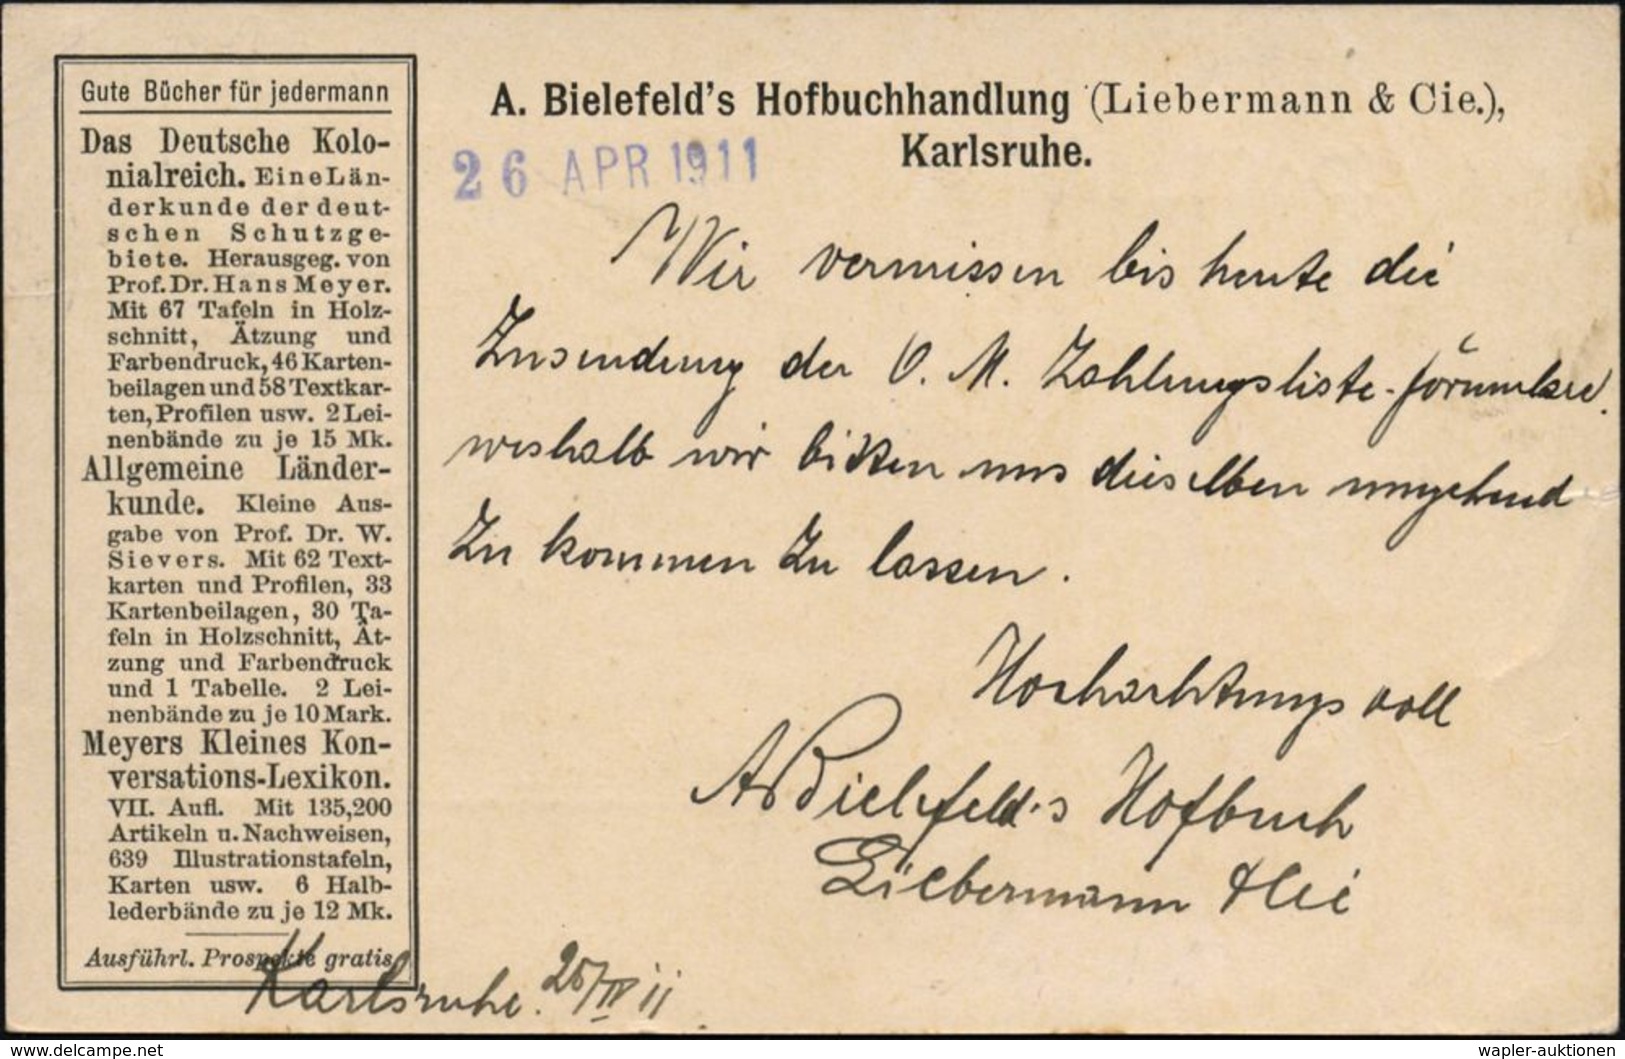 Gute Bücher für jedermann
Das Deutsche Kolo-
nialreich. Eine Län-
derkunde der deut-
schen Schutzge-
biete. Herausgeg. von
Prof. Dr. Hans Meyer.
Mit 67 Tafeln in Holz-
schnitt, Ätzung und
Farbendruck, 46 Karten-
beilagen und 58 Textkar-
ten, Profilen usw. 2 Lei-
nenbände zu je 15 Mk.
Allgemeine Länder-
kunde. Kleine Aus-
gabe von Prof. Dr. W.
Sievers. Mit 62 Text-
karten und Profilen, 33
Kartenbeilagen, 30 Ta-
feln in Holzschnitt, Ät-
zung und Farbendruck
und 1 Tabelle. 2 Lei-
nenbände zu je 10 Mark.
Meyers Kleines Kon-
versations-Lexikon.
VII. Aufl. Mit 135,200
Artikeln u. Nachweisen,
639 Illustrationstafeln,
Karten usw. 6 Halb-
lederbände zu je 12 Mk.
Ausführl. Prospekte gratis
A. Bielefeld's Hofbuchhandlung (Liebermann & Cie.),
Karlsruhe.
26 APR 1911
Wir vermissen bis heute die
Zusendung der O. M. Zahlungsliste-
weshalb wir bitten uns dieselben umgehend
zu kommen zu lassen.
Hochachtungsvoll
A Bielefeld's Hofbuch
Liebermann & Cie
Karlsruhe. 25/IV 11
www.delcampe.net
wapler-auktionen